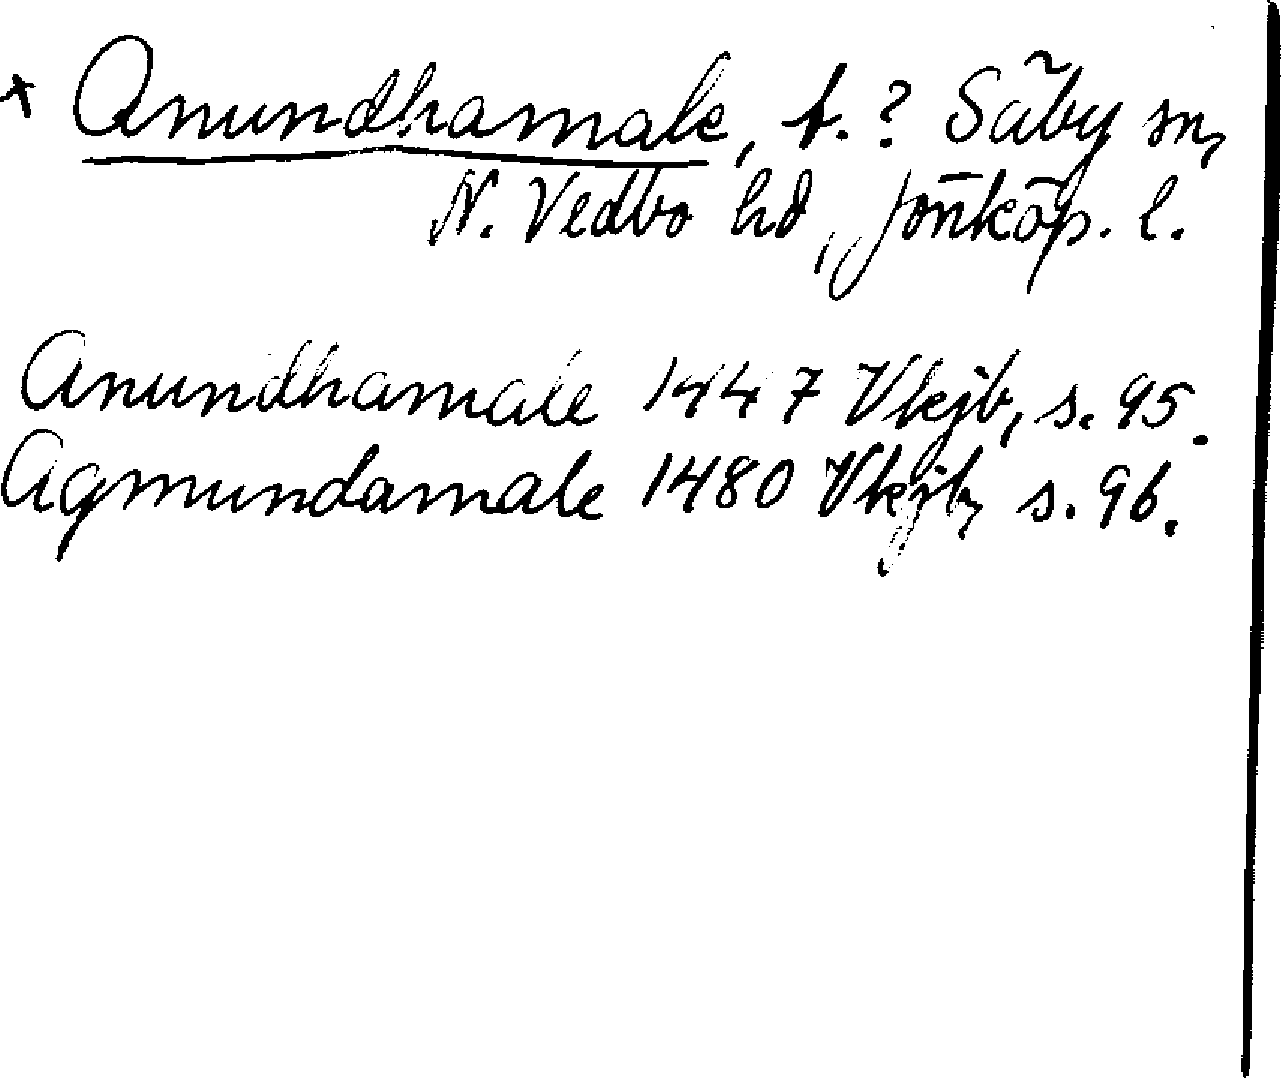 + Anundhamale, t. ? Säby sn,
N. Vedbo hd, Jönköp. l.
Anundhamale 1447 Vkjb, s. 95.
Agmundamale 1480 Vkjb, s. 96.